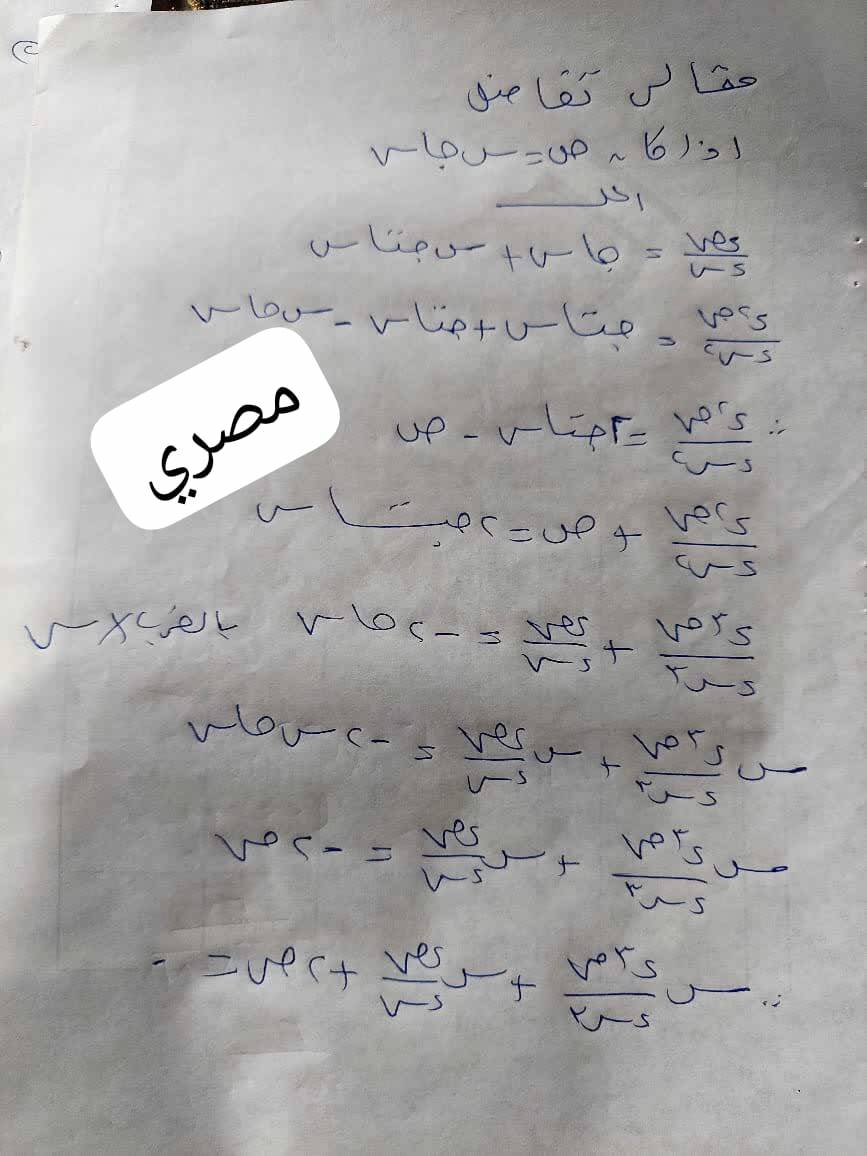 مقالى تفاضل
اذا كان ص = س جاس
د ص/د س = جا س + س جتا س
د٢ص/د س٢ = جتاس + جتاس - س جاس
∴ د٢ص/د س٢ = ٢جتاس - ص
د٢ص/د س٢ + ص = ٢جتاس
د٣ص/د س٣ + د ص/د س = -٢جاس بالضرب × س
س د٣ص/د س٣ + س د ص/د س = -٢س جاس
س د٣ص/د س٣ + س د ص/د س = -٢ص
∴ س د٣ص/د س٣ + س د ص/د س + ٢ص = ٠
مصري